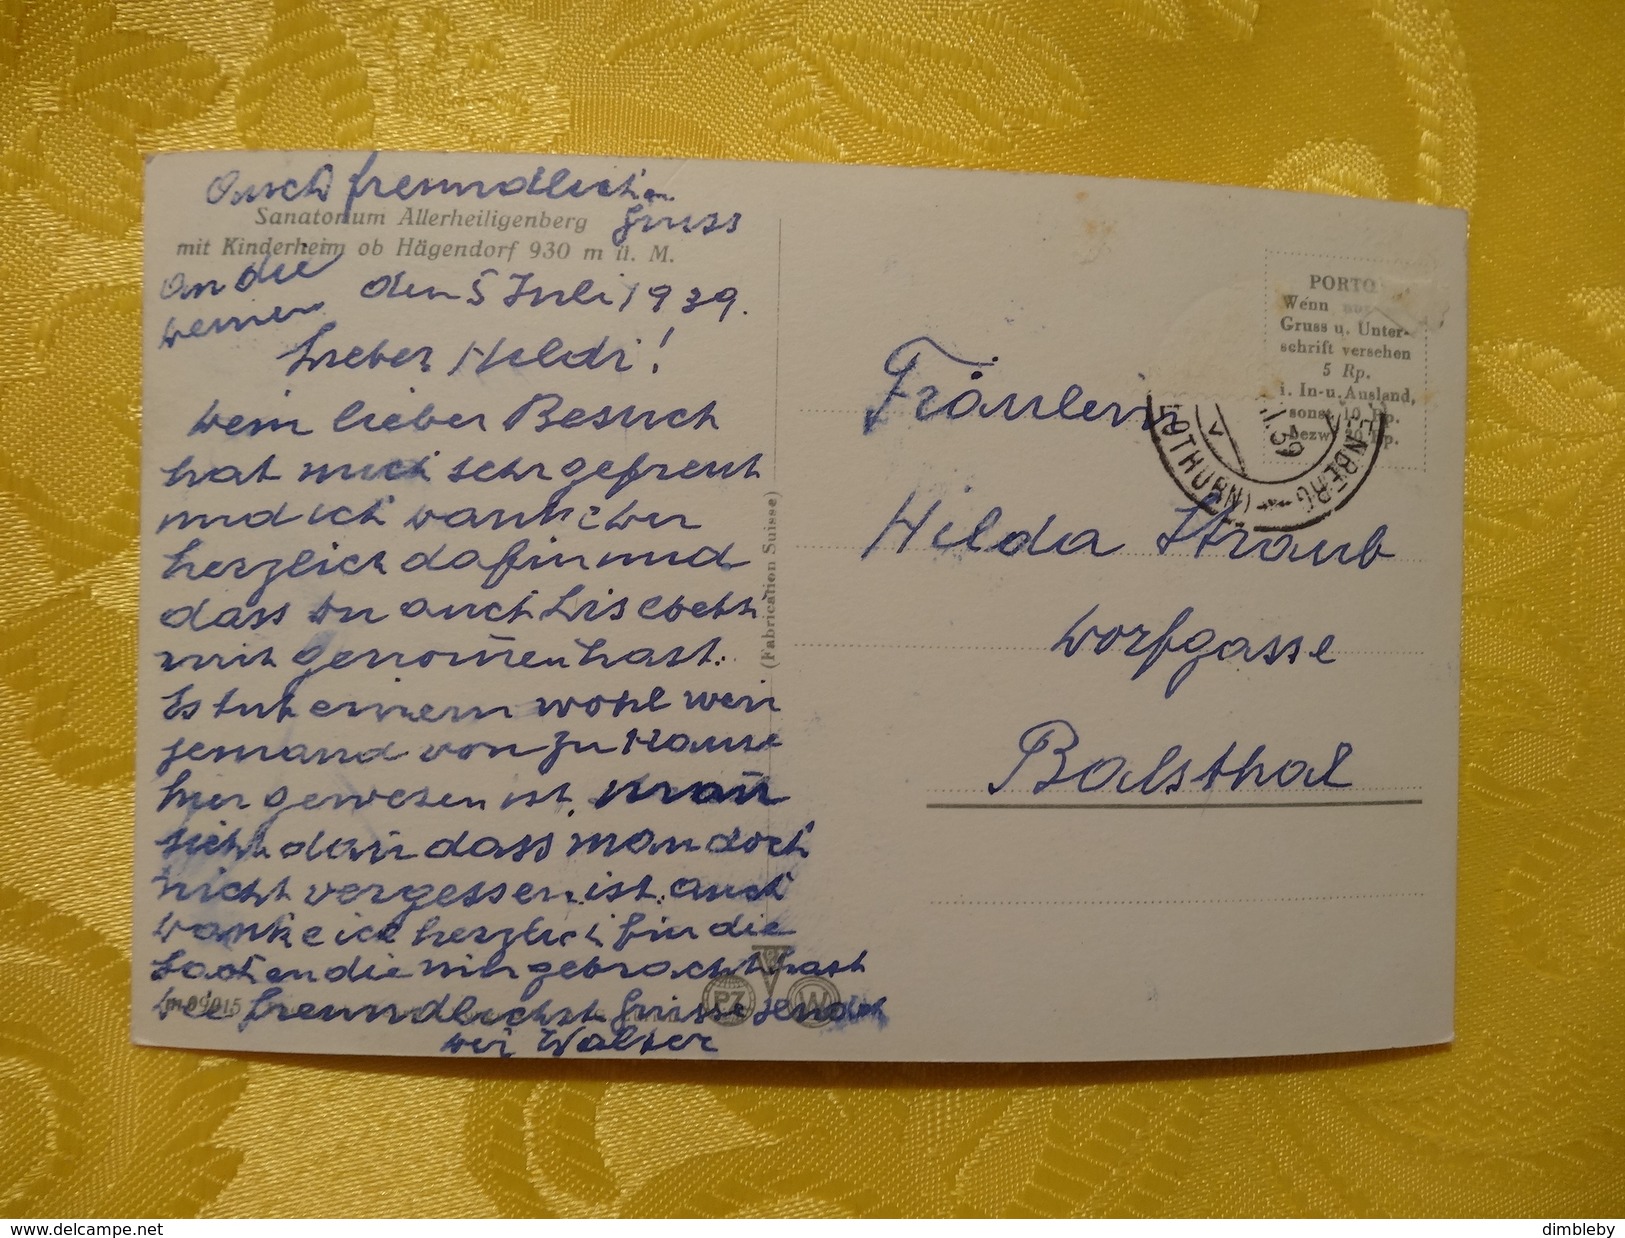 Auch freundlichen
Gruss
an die
deinen
Sanatorium Allerheiligenberg
mit Kinderheim ob Hägendorf 930 m ü. M.
den 5 Juli 1939.
Lieber Heldi!
Dein lieber Besuch
hat mich sehr gefreut
und ich danke dir
herzlich dafür und
dass du auch Lisebeth
mit genom̄en hast.
Es tut einem wohl wen
jemand von zu Hause
hier gewesen ist. man
sieht dan dass man doch
nicht vergessen ist. auch
danke ich herzlich für die
Sachen die mir gebracht hast
Die freundlichst Grüsse sendet
dei Walter
(Fabrication Suisse)
09015
PZ
W
PORTO
Wenn nur
Gruss u. Unter-
schrift versehen
5 Rp.
i. In- u. Ausland,
sonst 10 Rp.
bezw. 20 Rp.
NBERG
OTHURN)
39
Fräulein
Hilda Straub
Dorfgasse
Balsthal
delcampe.net
dimbleby